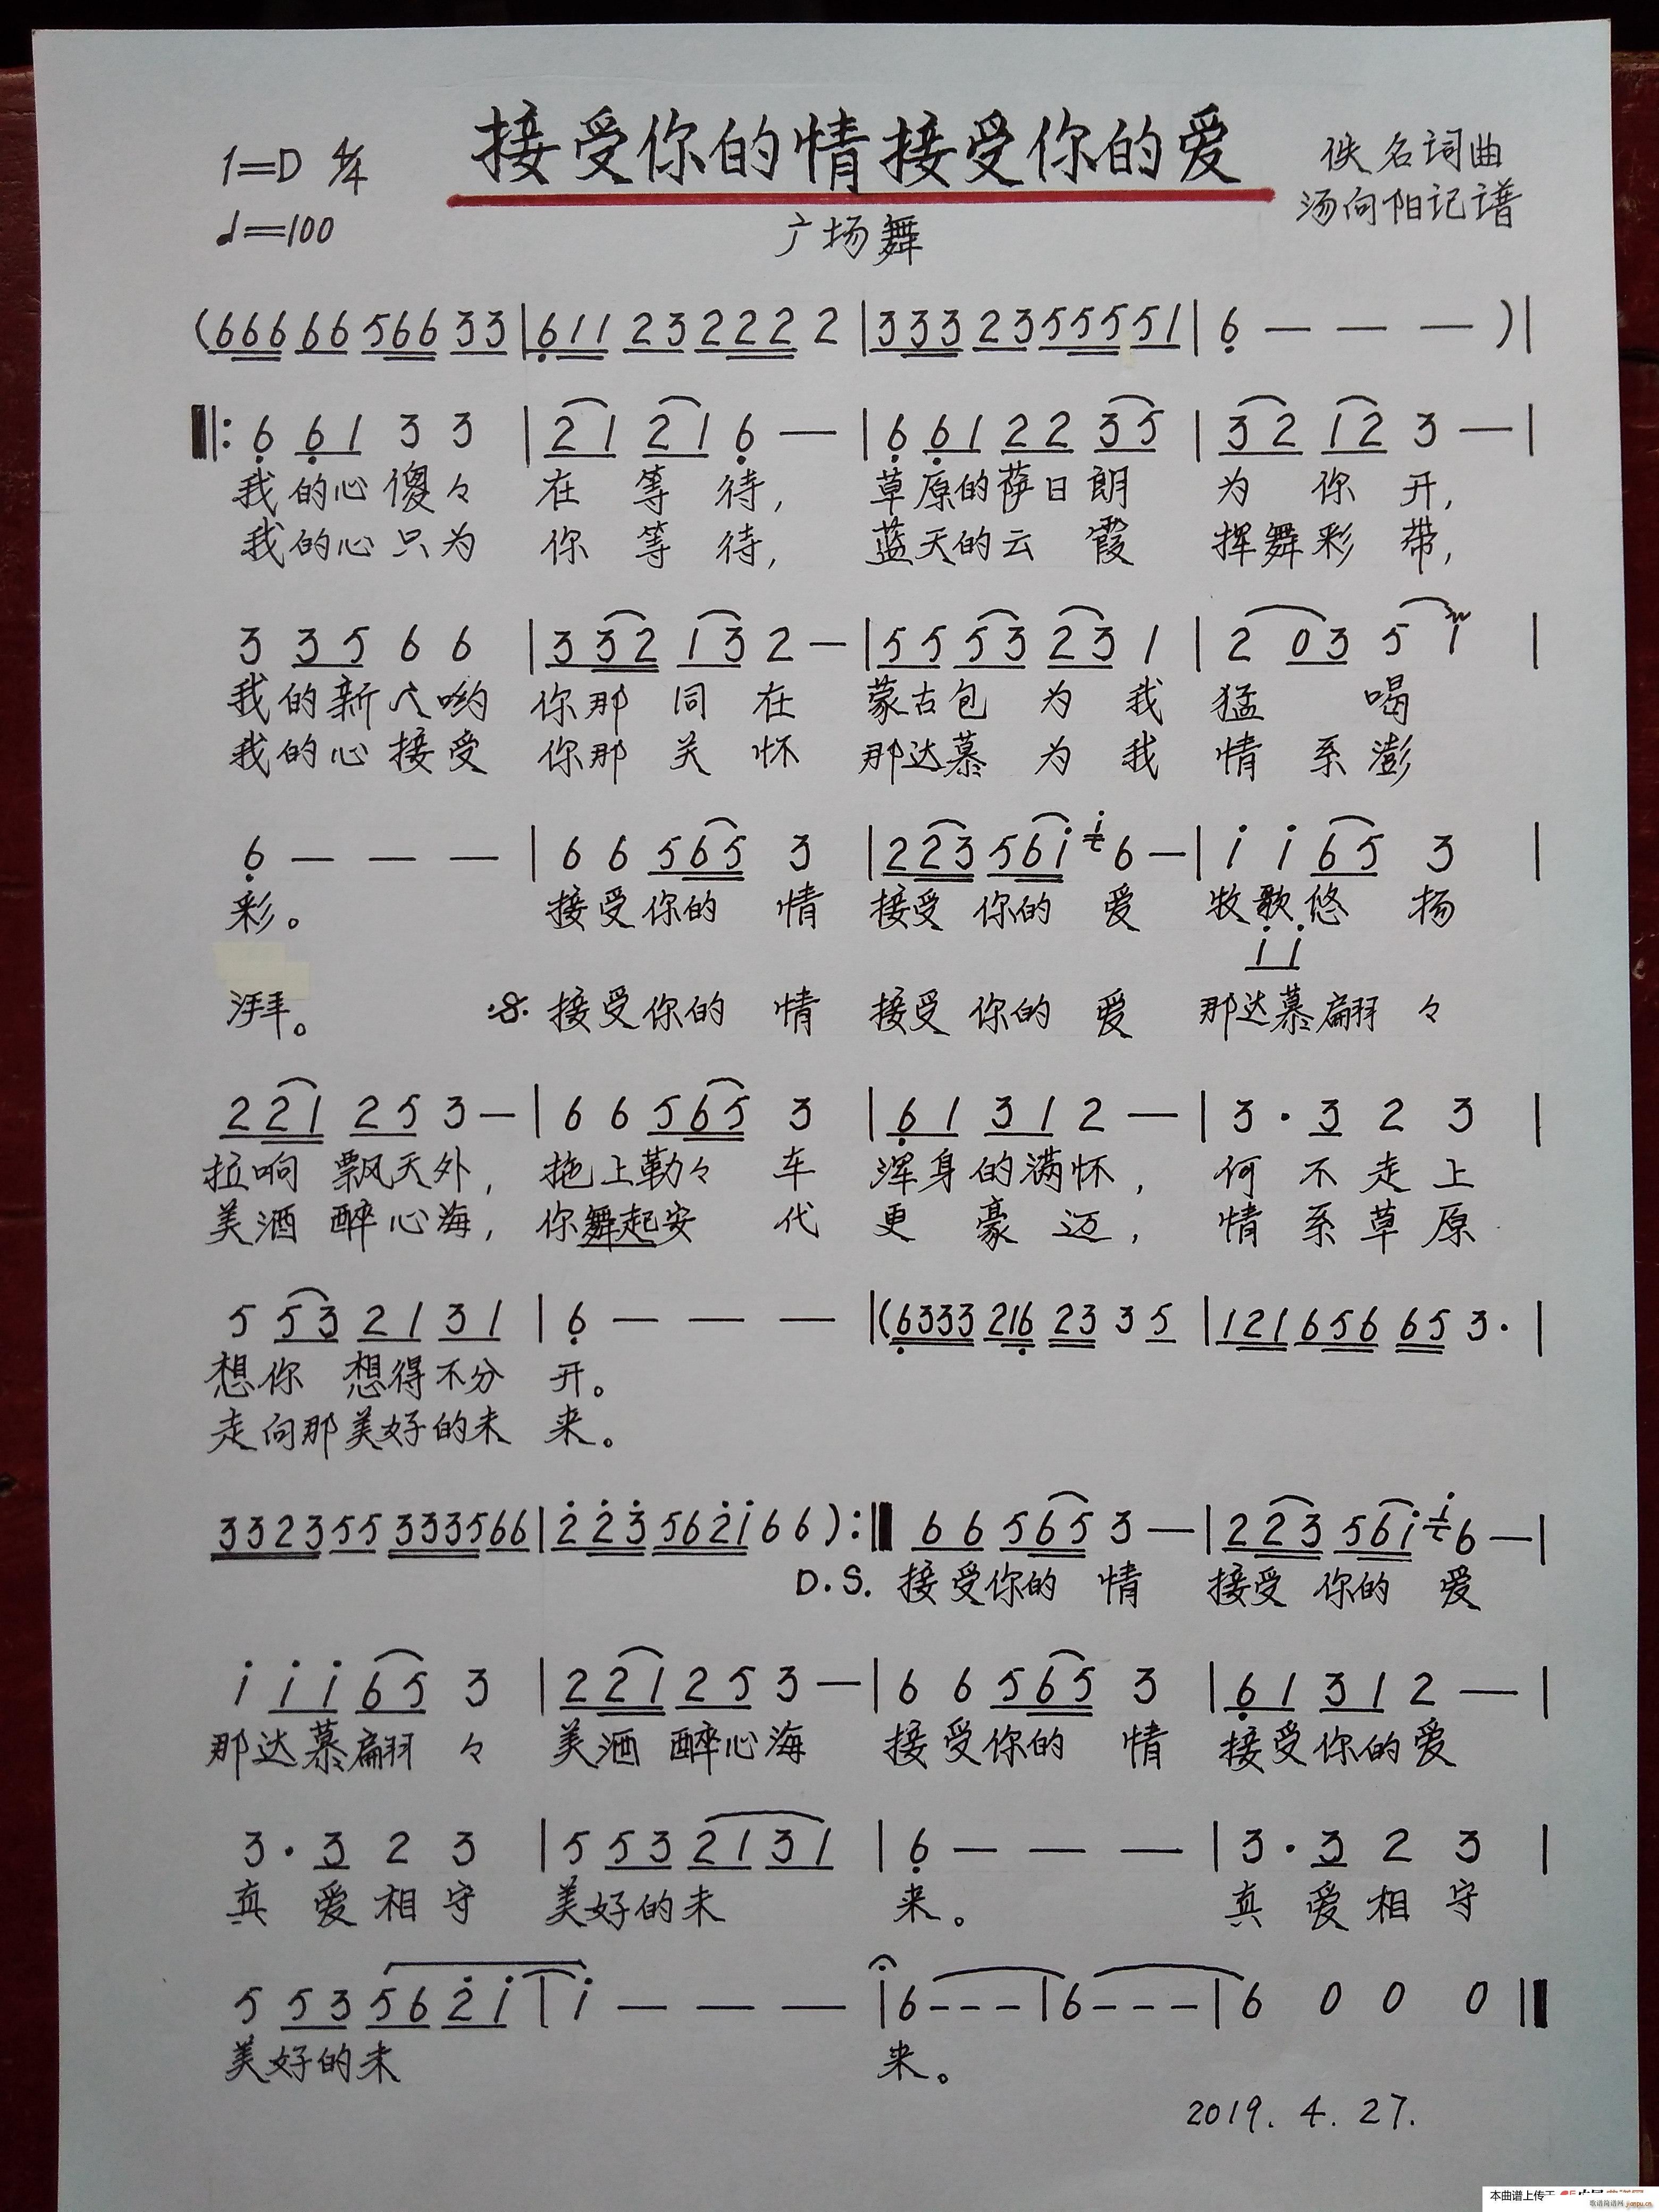 接受你的情接受你的爱
1=D 4/4
佚名词曲
♩=100
广场舞
汤向阳记谱
(666 66 566 33|611 23 222 2|333 23 555551|6 — — —)|
‖:6 61 3 3 |21 21 6 —|6 61 22 35|32 12 3 —|
我的心傻々 在 等 待, 草原的萨日朗 为 你 开,
我的心只为 你 等 待, 蓝天的云 霞 挥舞彩 带,
3 35 6 6 |332 13 2 —|55 53 23 1|2 03 5 1 |
我的新 哟 你那 同 在 蒙古包 为 我 猛 喝
我的心接受 你那 关 怀 那达慕 为 我 情 系澎
6 — — — |6 6 565 3 |223 56i i6 —|i i 65 3 |
彩。 接受你的 情 接受 你的 爱 牧歌悠 扬
i i
湃。 :S: 接受你的 情 接受 你的 爱 那达慕翩 々
221 25 3 —|6 6 565 3 |61 31 2 —|3 · 3 2 3 |
拉响 飘天外, 拖上勒々 车 浑身的满怀, 何 不 走 上
美酒 醉心海, 你舞起安 代 更 豪 迈, 情 系草 原
5 53 21 31 |6 — — — |(6333 216 23 3 5 |121 656 65 3· |
想你 想得不分 开。
走向那美好的未 来。
332355 3335 66|2 23 562i 66):‖ 66 565 3 —|223 56i i6 —|
D.S. 接受你的 情 接受 你的 爱
i i i 65 3 |221 25 3 —|6 6 565 3 |61 31 2 —|
那达慕翩 々 美酒 醉心海 接受你的 情 接受你的爱
3 · 3 2 3 |5 53 21 31 |6 — — — |3 · 3 2 3 |
真 爱相 守 美好的未 来。 真 爱相 守
5 53 56 2i |i — — — |6 - - - |6 - - - |6 0 0 0 ‖
美好的未 来。
2019. 4. 27.
本曲谱上传于